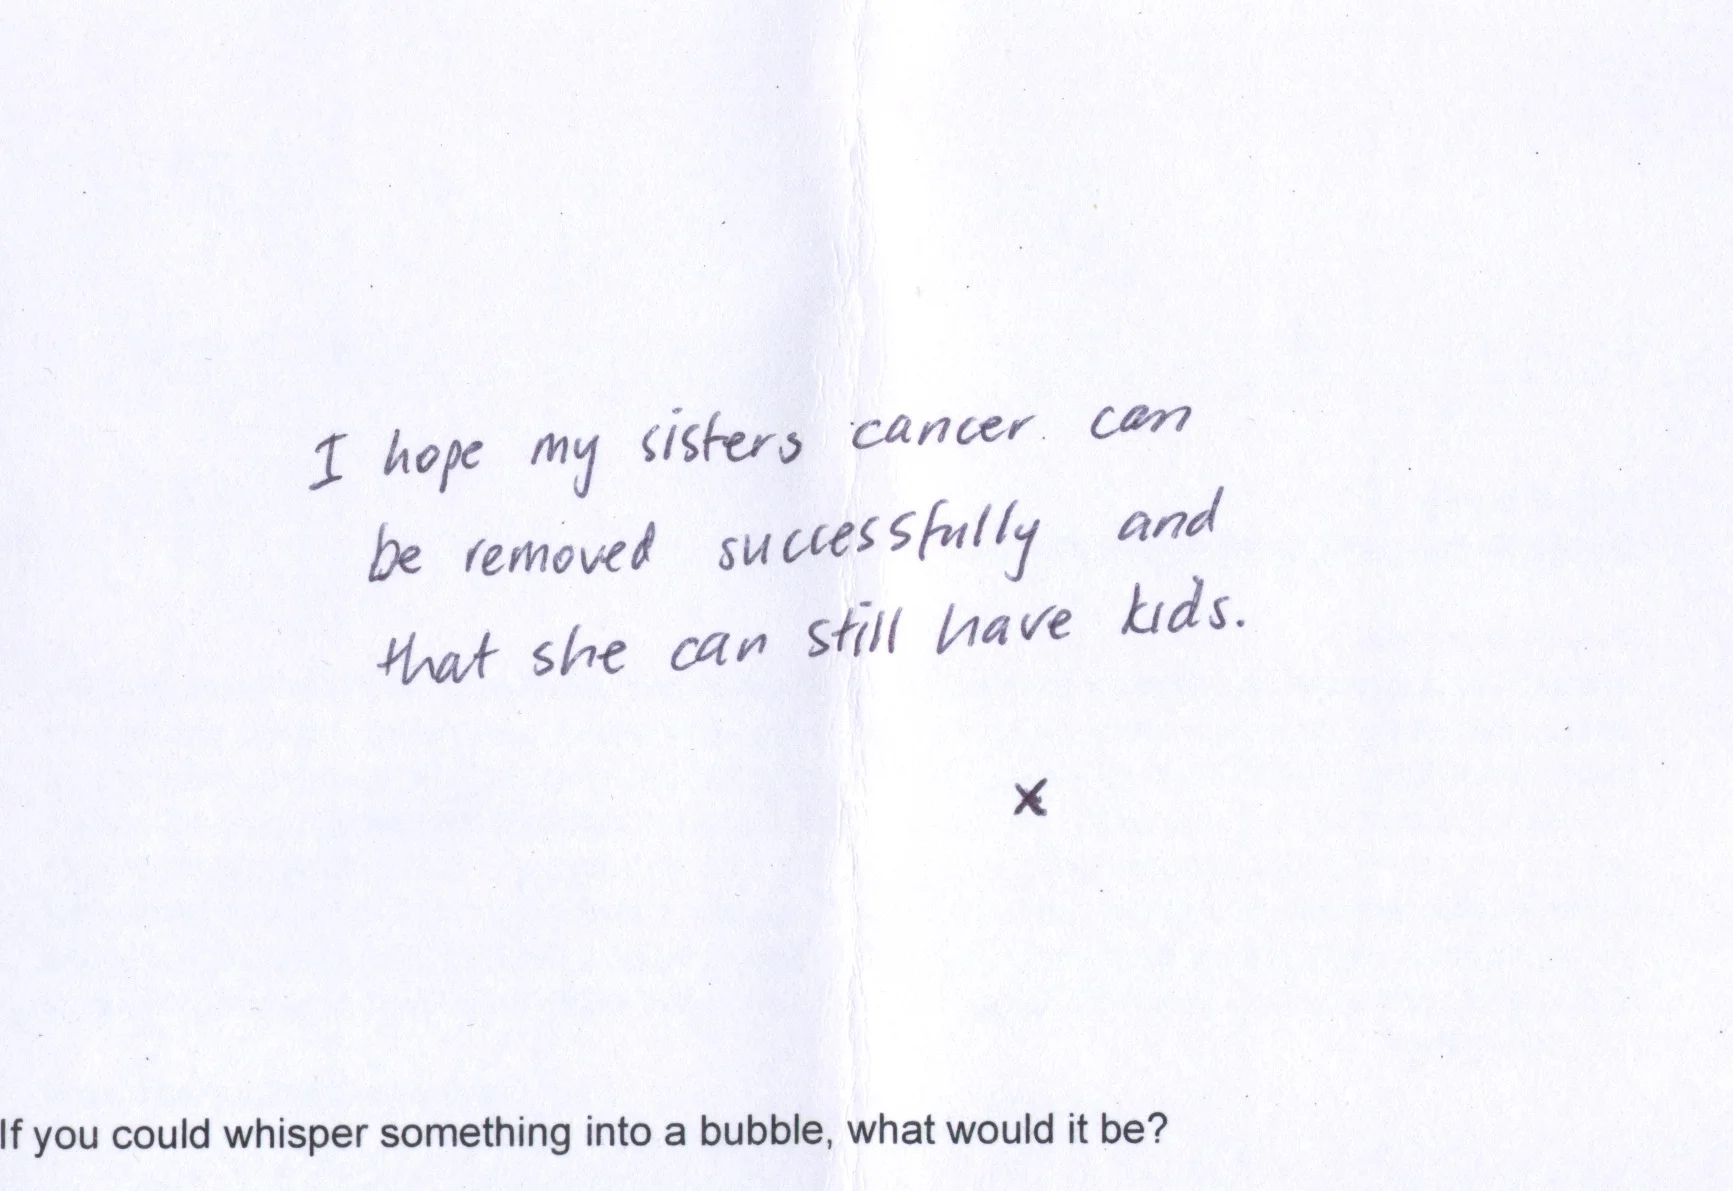 I hope my sisters cancer can
be removed successfully and
that she can still have kids.
x
If you could whisper something into a bubble, what would it be?